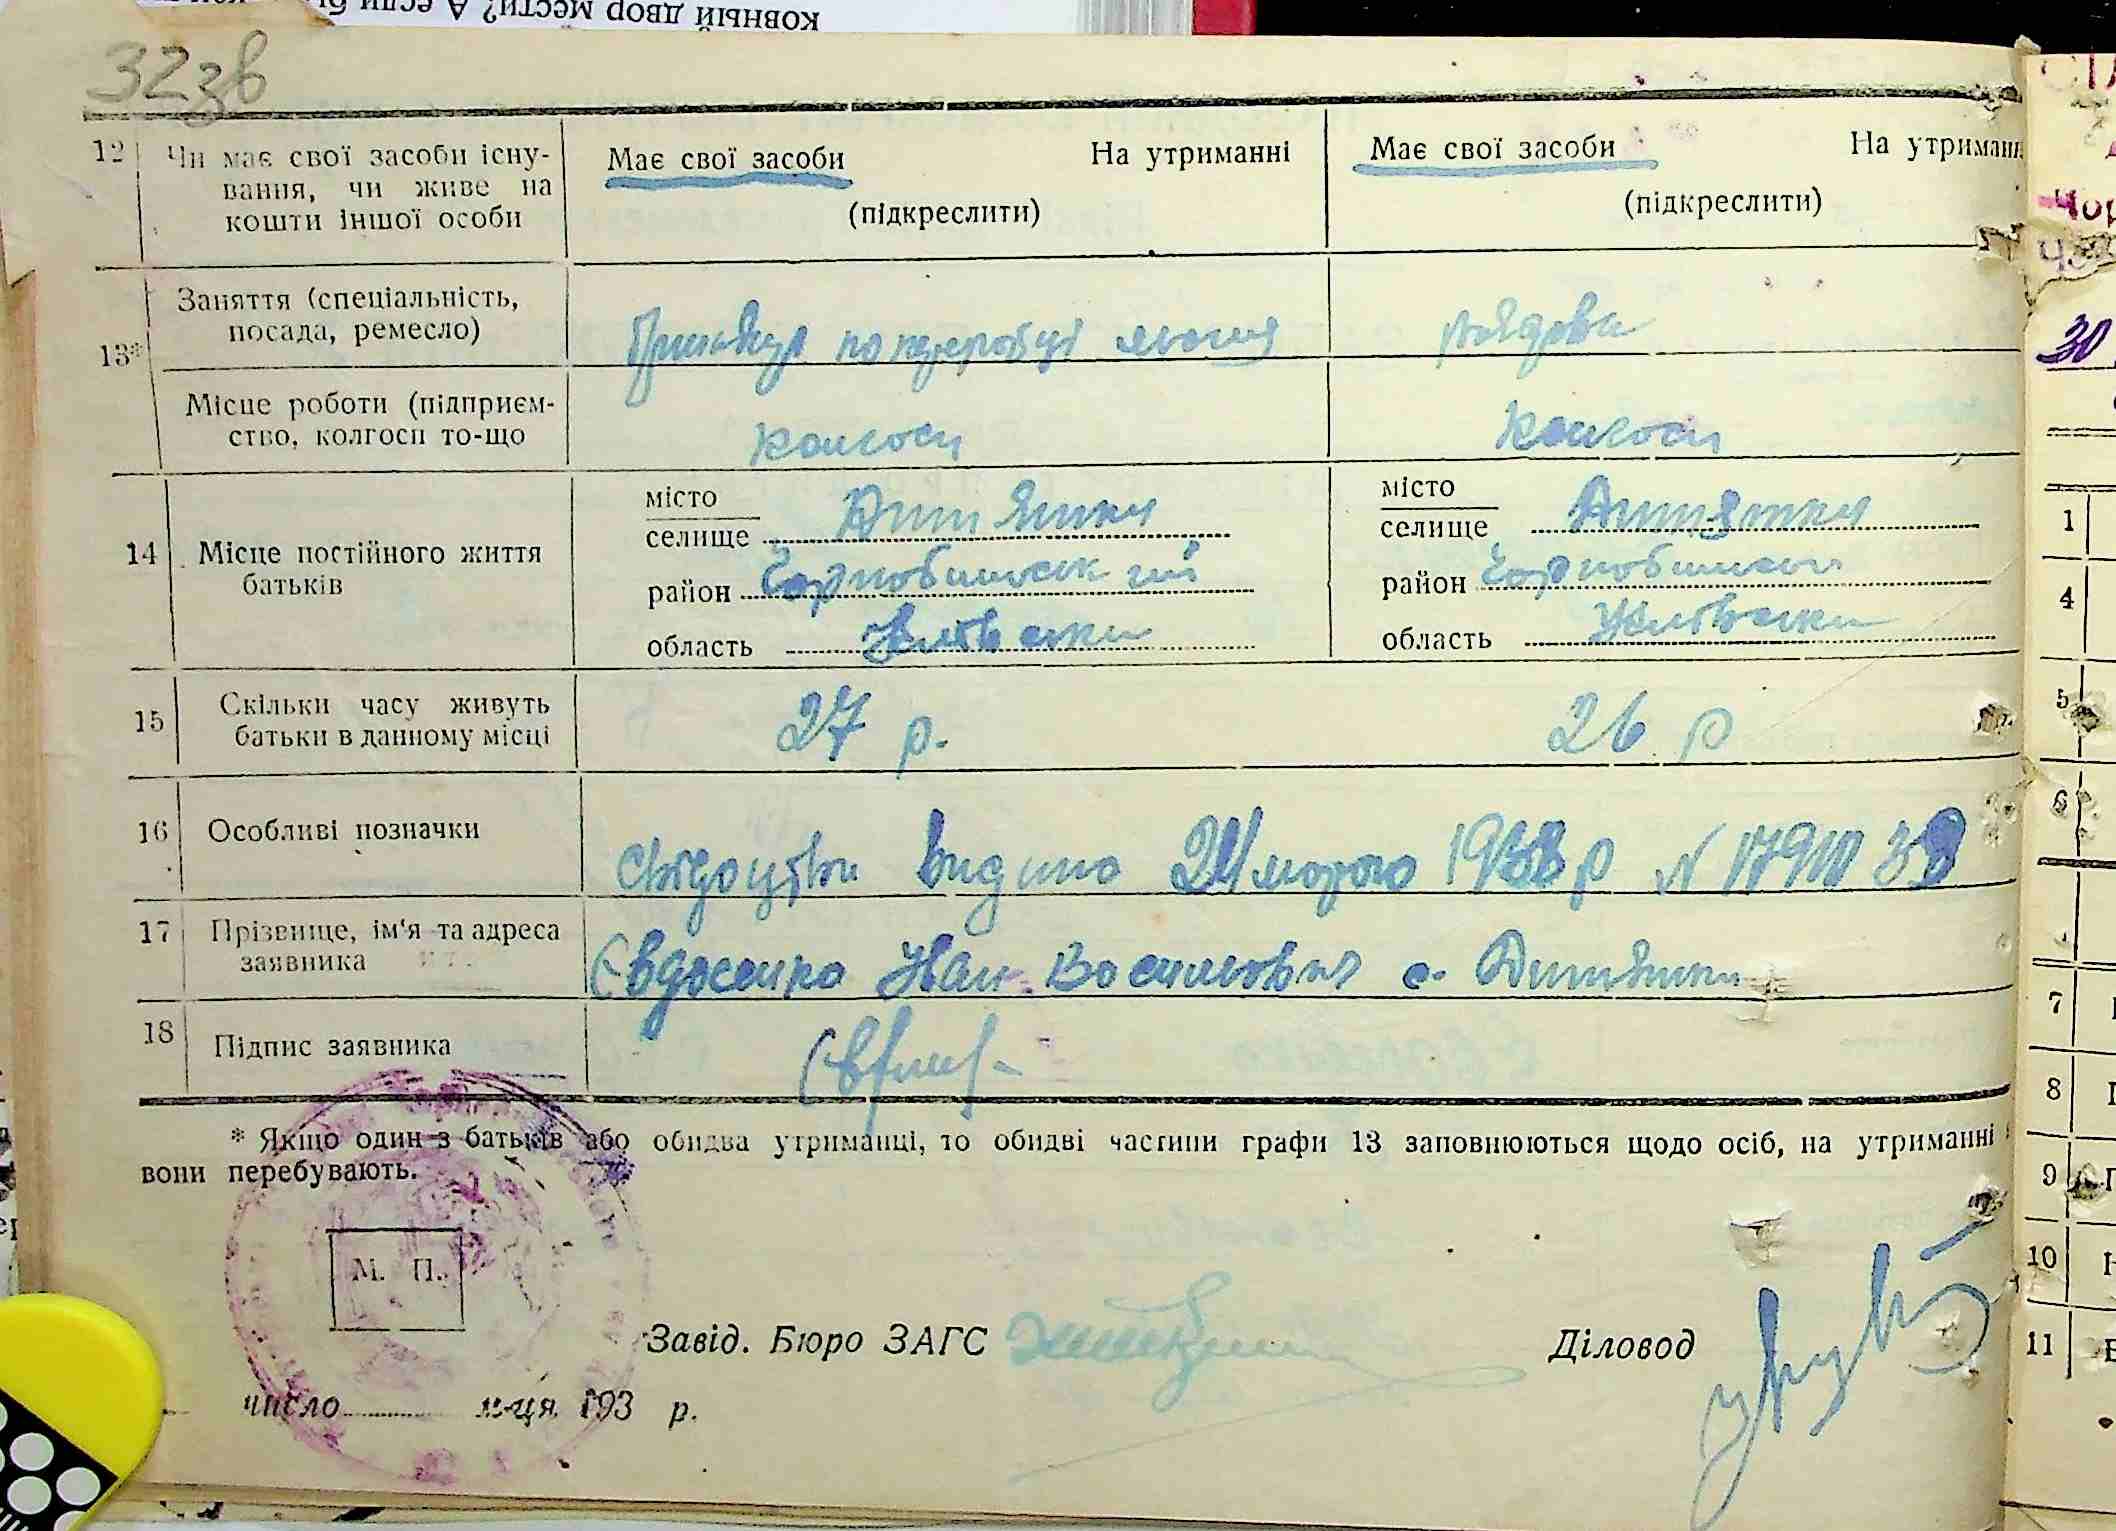 32зв
12 Чи має свої засоби існу-
вання, чи живе на
кошти іншої особи
Має свої засоби На утриманні
(підкреслити)
Має свої засоби На утриманн
(підкреслити)
13* Заняття (спеціальність,
посада, ремесло)
по переробці
рядова
Місце роботи (підприєм-
ство, колгосп то-що
колгосп
колгосп
14 Місце постійного життя
батьків
місто
селище Дитятки
район Чорнобильський
область Київська
місто
селище Дитятки
район Чорнобильськ
область Київська
15 Скільки часу живуть
батьки в данному місці
27 р.
26 р
16 Особливі позначки
Свідоцтво видано лютого 1938 р N
17 Прізвище, ім'я та адреса
заявника
Євдосенко Іван Васильович с. Дитятки
18 Підпис заявника
* Якщо один з батьків або обидва утриманці, то обидві частини графи 13 заповнюються щодо осіб, на утриманні
вони перебувають.
М. П.
Завід. Бюро ЗАГС
Діловод
число м-ця 193 р.
30
1
4
5
6
7
8
9
10
11